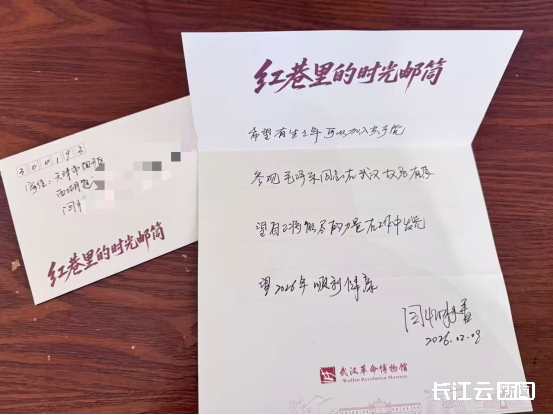 红巷里的时光邮筒
希望有生之年可以加入共产党
参观毛泽东同志在武汉故居有感
望自己将能力的力量在工作中发光
望2026年顺利健康
2026.02.08
武汉革命博物馆
Wuhan Revolution Museum
300193
天津市南开区
红巷里的时光邮筒
长江云新闻